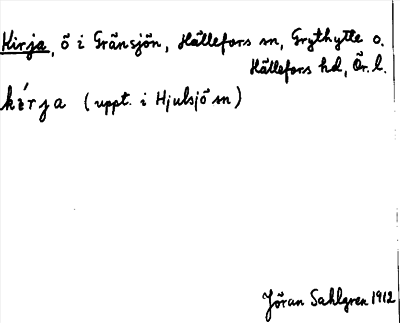 Kirja, ö i Gränsjön, Hällefors sn, Grythytte o.
Hällefors hd, Ör. l.
kírja (uppt. i Hjulsjö sn)
Jöran Sahlgren 1912